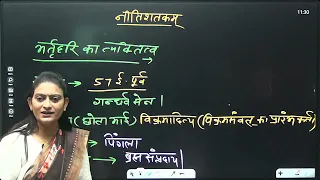 नीतिशतकम्
11:30
भर्तृहरि का व्यक्तित्व
57 ई. पूर्व
गन्धर्व सेन।
(छोटा भाई) विक्रमादित्य (विक्रमसंवत् का प्रारंभकर्ता)
पिंगला
संप्रदाय